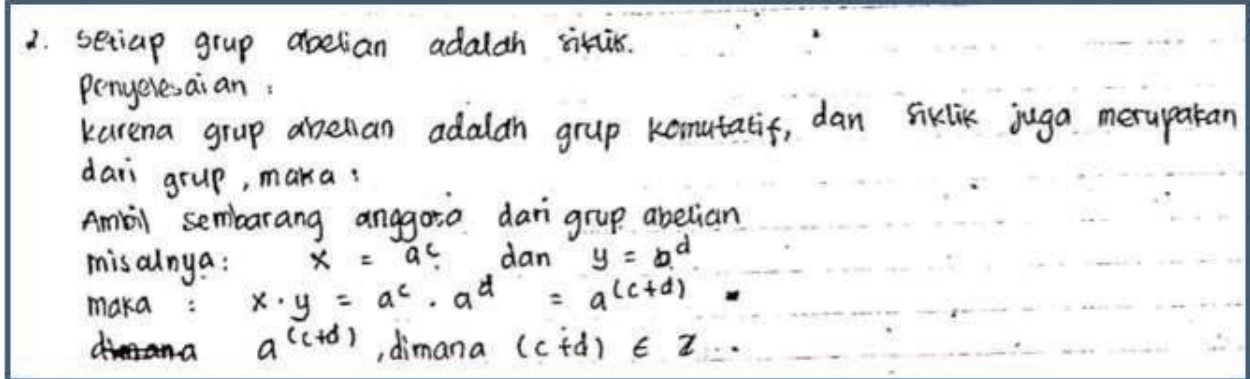 2. Setiap grup abelian adalah siklik.
Penyelesaian :
karena grup abelian adalah grup komutatif, dan siklik juga merupakan
dari grup, maka :
Ambil sembarang anggota dari grup abelian
misalnya: x = a^c dan y = a^d
maka : x · y = a^c . a^d = a^(c+d)
dimana a^(c+d), dimana (c+d) ∈ Z .